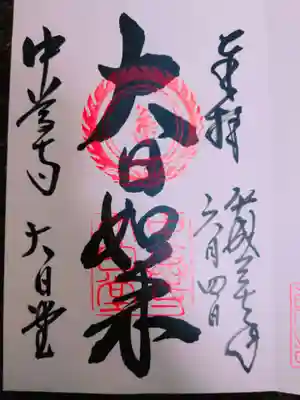 奉拝
平成三十年
六月四日
大日如来
中尊寺 大日堂